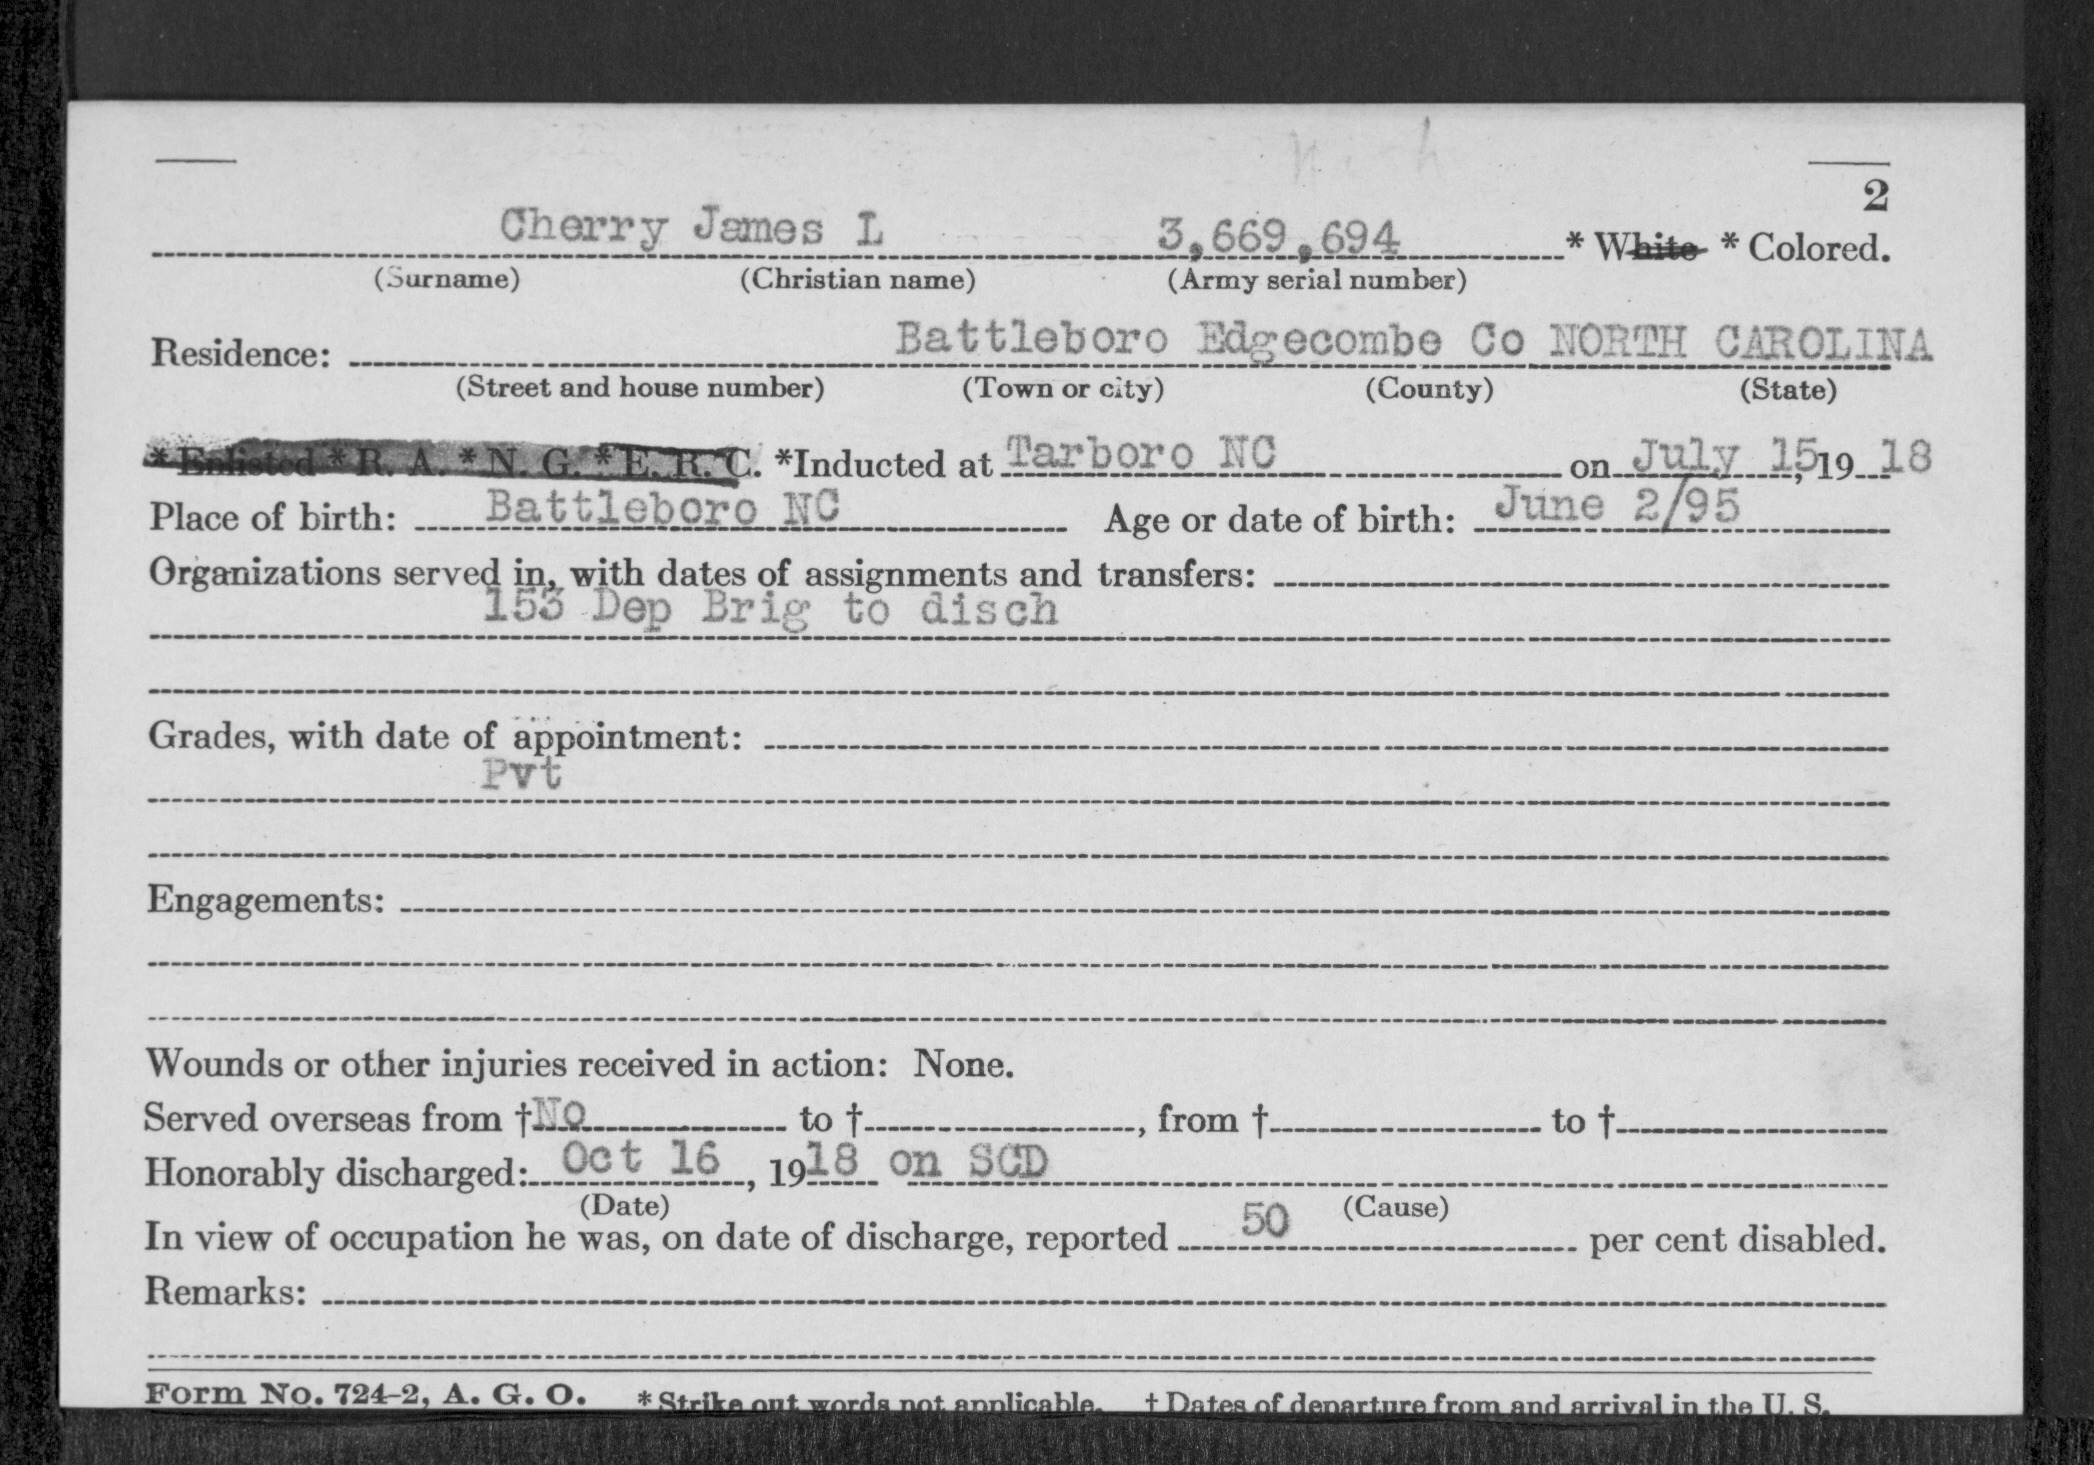 2
Cherry James L 3,669,694 * White * Colored.
(Surname) (Christian name) (Army serial number)
Residence: Battleboro Edgecombe Co NORTH CAROLINA
(Street and house number) (Town or city) (County) (State)
* Enlisted * R. A. * N. G. * E. R. C. *Inducted at Tarboro NC on July 15, 1918
Place of birth: Battleboro NC Age or date of birth: June 2/95
Organizations served in, with dates of assignments and transfers:
153 Dep Brig to disch
Grades, with date of appointment:
Pvt
Engagements:
Wounds or other injuries received in action: None.
Served overseas from † No to †, from † to †
Honorably discharged: Oct 16, 1918 on SCD
(Date) (Cause)
In view of occupation he was, on date of discharge, reported 50 per cent disabled.
Remarks:
Form No. 724-2, A. G. O. * Strike out words not applicable. † Dates of departure from and arrival in the U. S.